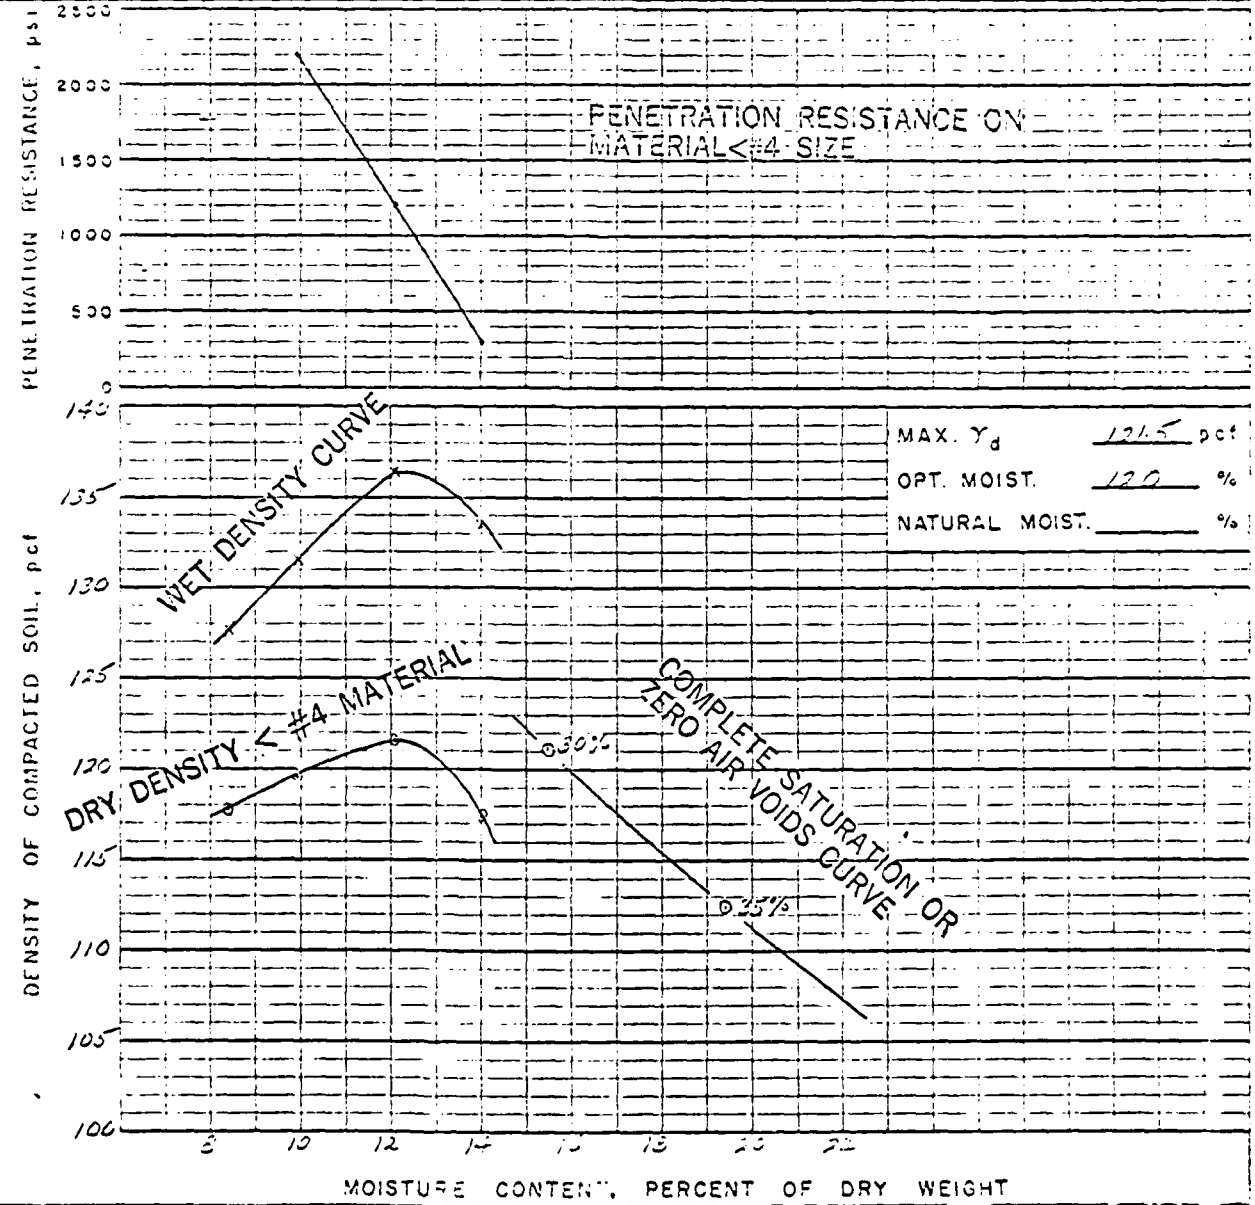 PENETRATION RESISTANCE, psi
2500
2000
1500
1000
500
0
PENETRATION RESISTANCE ON
MATERIAL<#4 SIZE
DENSITY OF COMPACTED SOIL, pcf
140
135
130
125
120
115
110
105
100
WET DENSITY CURVE
DRY DENSITY < #4 MATERIAL
COMPLETE SATURATION OR
ZERO AIR VOIDS CURVE
30%
35%
MAX. γd 121.5 pcf
OPT. MOIST. 12.0 %
NATURAL MOIST. %
8 10 12 14 16 18 20 22
MOISTURE CONTENT, PERCENT OF DRY WEIGHT